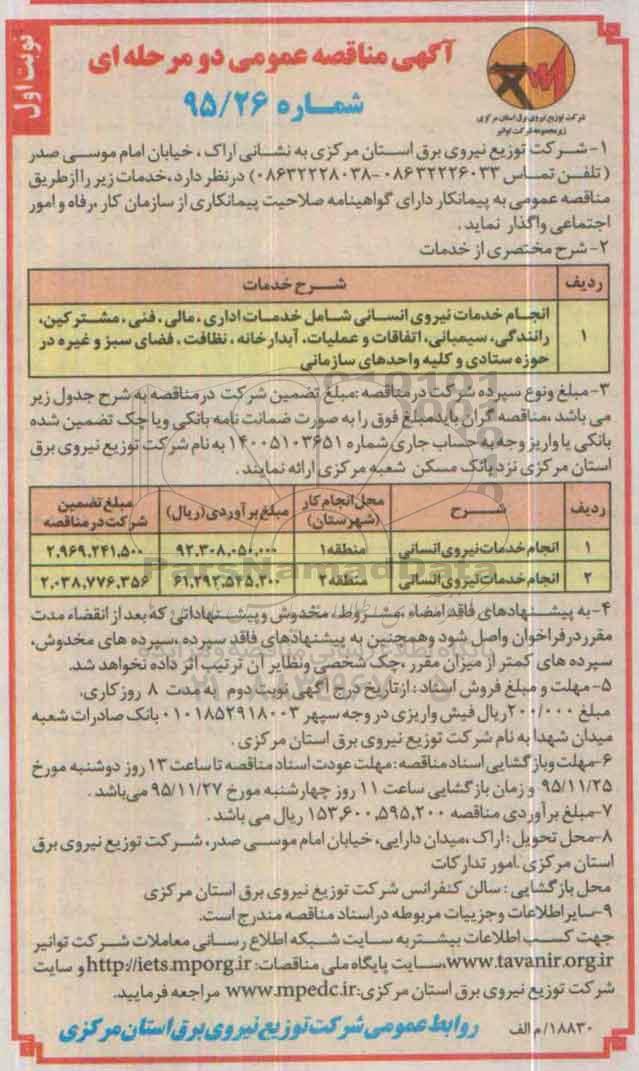 نوبت اول
آگهی مناقصه عمومی دو مرحله ای
شماره ۹۵/۲۶
شرکت توزیع نیروی برق استان مرکزی
زیرمجموعه شرکت توانیر
۱-شرکت توزیع نیروی برق استان مرکزی به نشانی اراک ، خیابان امام موسی صدر
( تلفن تماس ۰۸۶۳۲۲۲۶۰۳۳-۰۸۶۳۲۲۲۸۰۳۸) درنظر دارد،خدمات زیر را ازطریق
مناقصه عمومی به پیمانکار دارای گواهینامه صلاحیت پیمانکاری از سازمان کار ،رفاه و امور
اجتماعی واگذار نماید .
۲-شرح مختصری از خدمات
ردیف شرح خدمات
۱ انجام خدمات نیروی انسانی شامل خدمات اداری ، مالی ، فنی ، مشترکین،
رانندگی، سیمبانی، اتفاقات و عملیات، آبدارخانه ، نظافت ، فضای سبز و غیره در
حوزه ستادی و کلیه واحدهای سازمانی
۳-مبلغ ونوع سپرده شرکت در مناقصه :مبلغ تضمین شرکت در مناقصه به شرح جدول زیر
می باشد ،مناقصه گران بایدمبلغ فوق را به صورت ضمانت نامه بانکی ویا چک تضمین شده
بانکی یا واریز وجه به حساب جاری شماره ۱۴۰۰۵۱۰۳۶۵۱ به نام شرکت توزیع نیروی برق
استان مرکزی نزد بانک مسکن شعبه مرکزی ارائه نمایند .
ردیف شرح محل انجام کار (شهرستان) مبلغ برآوردی (ریال) مبلغ تضمین شرکت در مناقصه
۱ انجام خدمات نیروی انسانی منطقه ۱ ۹۲.۳۰۸.۰۵۰.۰۰۰ ۲.۹۶۹.۲۴۱.۵۰۰
۲ انجام خدمات نیروی انسانی منطقه ۲ ۶۱.۲۹۲.۵۴۵.۲۰۰ ۲.۰۳۸.۷۷۶.۳۵۶
ParsNamadData
۴-به پیشنهادهای فاقد امضاء ،مشروط، مخدوش و پیشنهاداتی که بعد از انقضاء مدت
مقرر درفراخوان واصل شود وهمچنین به پیشنهادهای فاقد سپرده ،سپرده های مخدوش،
سپرده های کمتر از میزان مقرر ،چک شخصی ونظایر آن ترتیب اثر داده نخواهد شد.
۵-مهلت و مبلغ فروش اسناد : ازتاریخ درج آگهی نوبت دوم به مدت ۸ روز کاری،
مبلغ ۲۰۰/۰۰۰ریال فیش واریزی در وجه سپهر ۰۱۰۱۸۵۲۹۱۸۰۰۳ بانک صادرات شعبه
میدان شهدا به نام شرکت توزیع نیروی برق استان مرکزی .
۶-مهلت وبازگشایی اسناد مناقصه : مهلت عودت اسناد مناقصه تا ساعت ۱۳ روز دوشنبه مورخ
۹۵/۱۱/۲۵ و زمان بازگشایی ساعت ۱۱ روز چهارشنبه مورخ ۹۵/۱۱/۲۷ می باشد .
۷-مبلغ برآوردی مناقصه ۱۵۳,۶۰۰,۵۹۵,۲۰۰ ریال می باشد .
۸-محل تحویل : اراک ،میدان دارایی، خیابان امام موسی صدر، شرکت توزیع نیروی برق
استان مرکزی .امور تدارکات
محل بازگشایی : سالن کنفرانس شرکت توزیع نیروی برق استان مرکزی
۹-سایر اطلاعات وجزییات مربوطه دراسناد مناقصه مندرج است.
جهت کسب اطلاعات بیشتر به سایت شبکه اطلاع رسانی معاملات شرکت توانیر
www.tavanir.org.ir،سایت پایگاه ملی مناقصات: http://iets.mporg.ir و سایت
شرکت توزیع نیروی برق استان مرکزی:www.mpedc.ir مراجعه فرمایید.
۱۸۸۳۰/م الف
روابط عمومی شرکت توزیع نیروی برق استان مرکزی